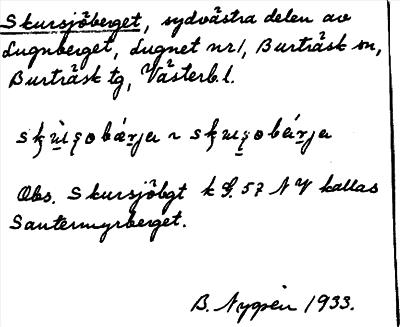 Skursjöberget, sydvästra delen av
Lugnberget, Lugnet nr 1, Burträsk sn,
Burträsk tg, Västerb. l.
Obs. Skursjöbgt k S. 57 NV kallas
Santermyrberget.
B. Nygren 1933.